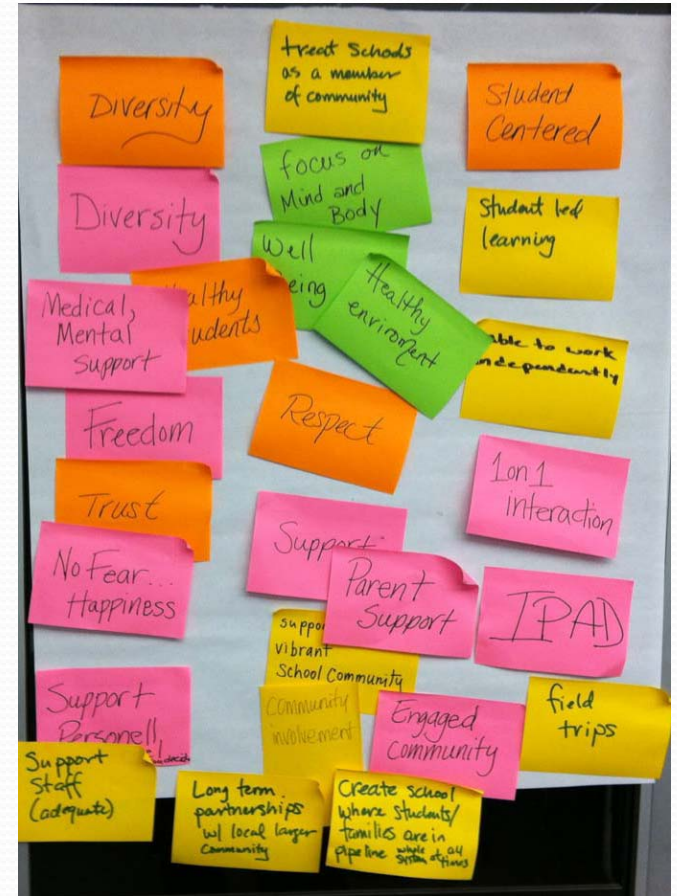 Diversity
Diversity
Medical,
Mental
Support
Healthy
Students
Freedom
Trust
No Fear...
Happiness
Support
Personell,
Support
Staff
(adequate)
treat Schools
as a member
of community
focus on
Mind and
Body
Well
Being
Healthy
enviroment
Respect
Support
Parent
Support
support
vibrant
School Community
Community
involvement
Engaged
Community
Long term
partnerships
w/ local larger
community
Create school
where students/
families are in
pipeline whole
system at all
times
Student
Centered
Student led
learning
able to work
independantly
1 on 1
interaction
IPAD
field
trips